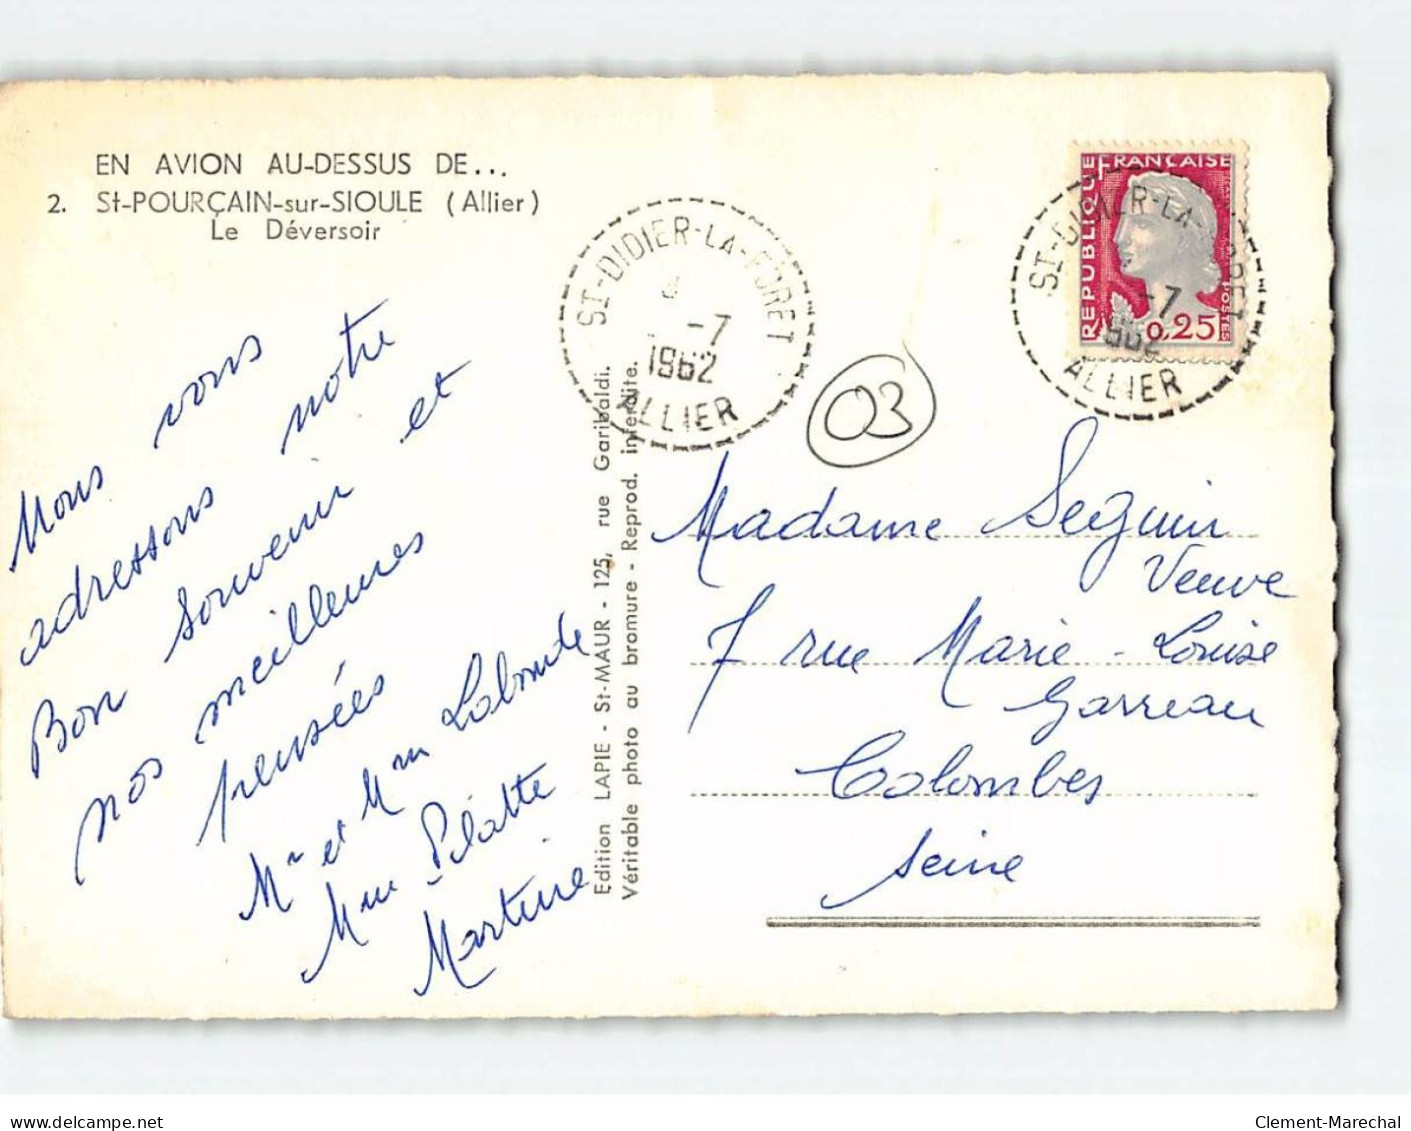 EN AVION AU-DESSUS DE...
2. St-POURÇAIN-sur-SIOULE (Allier)
Le Déversoir
Nous vous
adressons notre
Bon souvenir et
nos meilleures
pensées
Mr et Mme
Mme
Martine
Edition LAPIE - St-MAUR - 125, rue Garibaldi.
Véritable photo au bromure - Reprod. interdite.
ST-DIDIER-LA-FORET
-7
1962
ALLIER
03
REPUBLIQUE FRANÇAISE
POSTES
0,25
ST-DIDIER-LA-FORET
-7
1962
ALLIER
Madame Seguin
Veuve
7 rue Marie-Louise
Garreau
Colombes
Seine
www.delcampe.net
Clement-Marechal